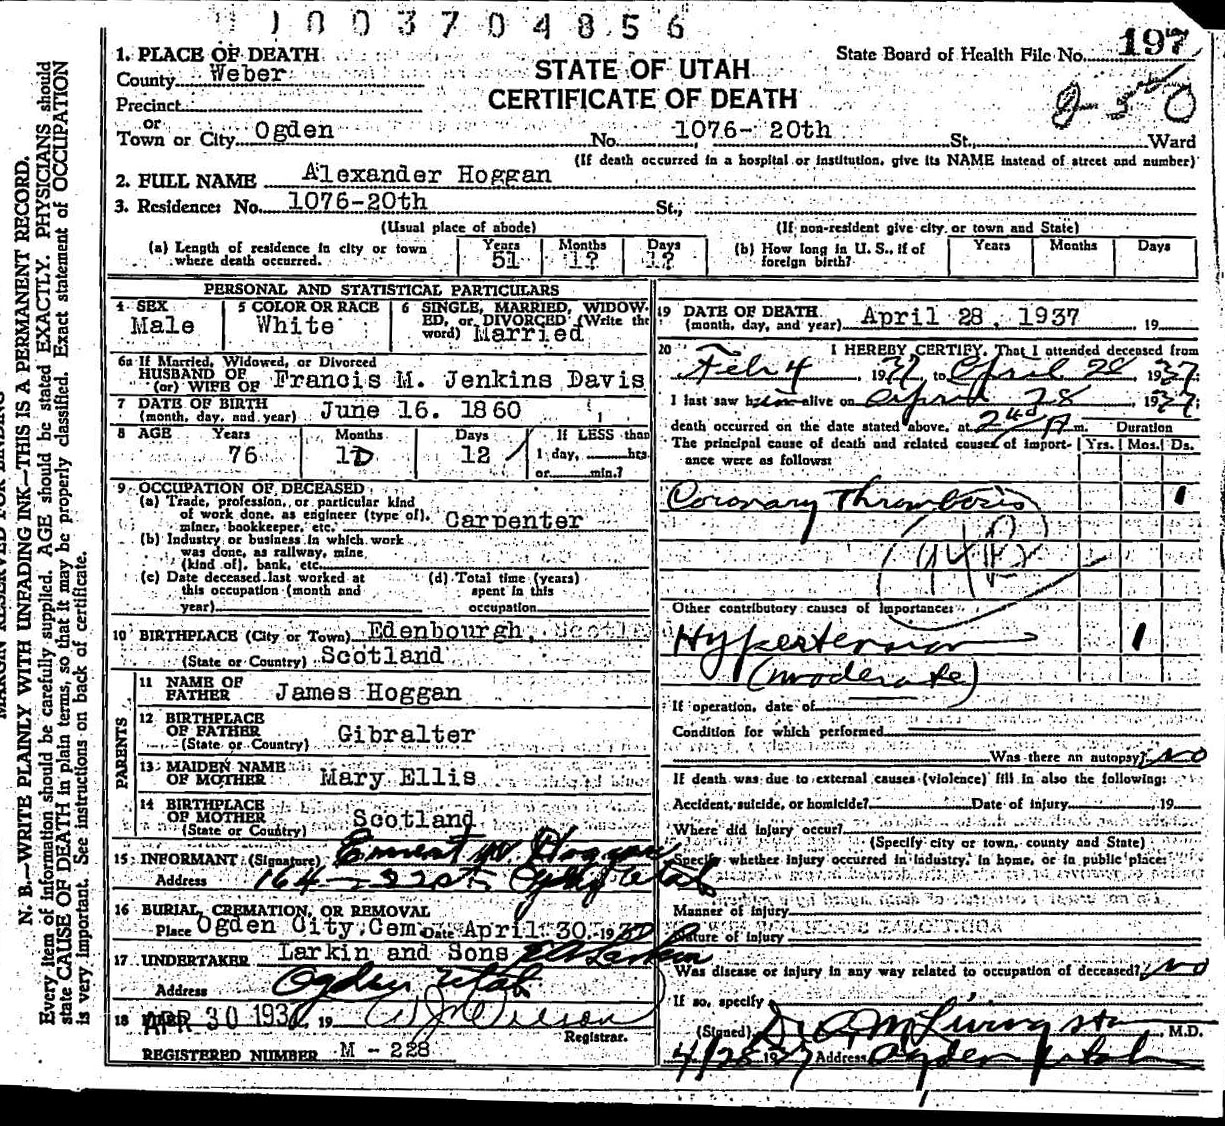 1003704856
1. PLACE OF DEATH
County Weber
Precinct
or
Town or City Ogden No. 1076-20th St., Ward
(If death occurred in a hospital or institution, give its NAME instead of street and number)
State Board of Health File No. 197
STATE OF UTAH
CERTIFICATE OF DEATH
2. FULL NAME Alexander Hoggan
3. Residence: No. 1076-20th St.,
(Usual place of abode) (If non-resident give city or town and State)
(a) Length of residence in city or town where death occurred. Years 51 Months 1? Days 1?
(b) How long in U. S., if of foreign birth? Years Months Days
PERSONAL AND STATISTICAL PARTICULARS
4 SEX Male
5 COLOR OR RACE White
6 SINGLE, MARRIED, WIDOWED, or DIVORCED (Write the word) Married
6a If Married, Widowed, or Divorced
HUSBAND OF
(or) WIFE OF Francis M. Jenkins Davis
7 DATE OF BIRTH
(month, day, and year) June 16. 1860
8 AGE Years 76 Months 10 Days 12
If LESS than
1 day, hrs.
or min.?
9 OCCUPATION OF DECEASED
(a) Trade, profession, or particular kind
of work done, as engineer (type of),
miner, bookkeeper, etc. Carpenter
(b) Industry or business in which work
was done, as railway, mine
(kind of), bank, etc.
(c) Date deceased last worked at
this occupation (month and
year)
(d) Total time (years)
spent in this
occupation
10 BIRTHPLACE (City or Town) Edenbourgh,
(State or Country) Scotland
PARENTS
11 NAME OF
FATHER James Hoggan
12 BIRTHPLACE
OF FATHER Gibralter
(State or Country)
13 MAIDEN NAME
OF MOTHER Mary Ellis
14 BIRTHPLACE
OF MOTHER Scotland
(State or Country)
15 INFORMANT (Signature) Ernest W Hoggan
Address 164 - 22 st Ogden Utah
16 BURIAL, CREMATION, OR REMOVAL
Place Ogden City Cem. Date April 30, 1937
17 UNDERTAKER Larkin and Sons Larkin
Address Ogden Utah
18 APR 30 1937, 19
Registrar.
REGISTERED NUMBER M-228
19 DATE OF DEATH
(month, day, and year) April 28, 1937, 19
20 I HEREBY CERTIFY, That I attended deceased from
Feb 4, 1937 to April 28, 1937
I last saw him alive on April 28, 1937
death occurred on the date stated above, at m. Duration
The principal cause of death and related causes of importance were as follows: Yrs. Mos. Ds.
Coronary Thrombosis 1
94B
Other contributory causes of importance:
Hypertension 1
(moderate)
If operation, date of
Condition for which performed
Was there an autopsy? no
If death was due to external causes (violence) fill in also the following:
Accident, suicide, or homicide? Date of injury 19
Where did injury occur?
(Specify city or town, county and State)
Specify whether injury occurred in industry, in home, or in public place:
Manner of injury
Nature of injury
Was disease or injury in any way related to occupation of deceased? no
If so, specify
(Signed) M.D.
4/28 1937 Address Ogden Utah
MARGIN RESERVED FOR BINDING
N. B.—WRITE PLAINLY WITH UNFADING INK—THIS IS A PERMANENT RECORD.
Every item of information should be carefully supplied. AGE should be stated EXACTLY. PHYSICIANS should
state CAUSE OF DEATH in plain terms, so that it may be properly classified. Exact statement of OCCUPATION
is very important. See instructions on back of certificate.